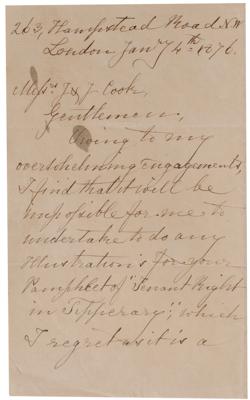 263, Hampstead Road NW
London Jany 4th 1876.
Messrs J & J Cook,
Gentlemen,
Owing to my
overwhelming engagements,
I find that it will be
impossible for me to
undertake to do any
Illustrations for your
Pamphlet of "Tenant Right
in Tipperary", which
I regret as it is a